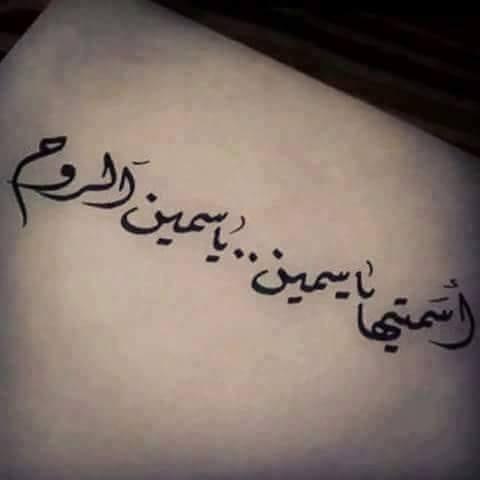 أسميتها ياسمين.. ياسمين الروح